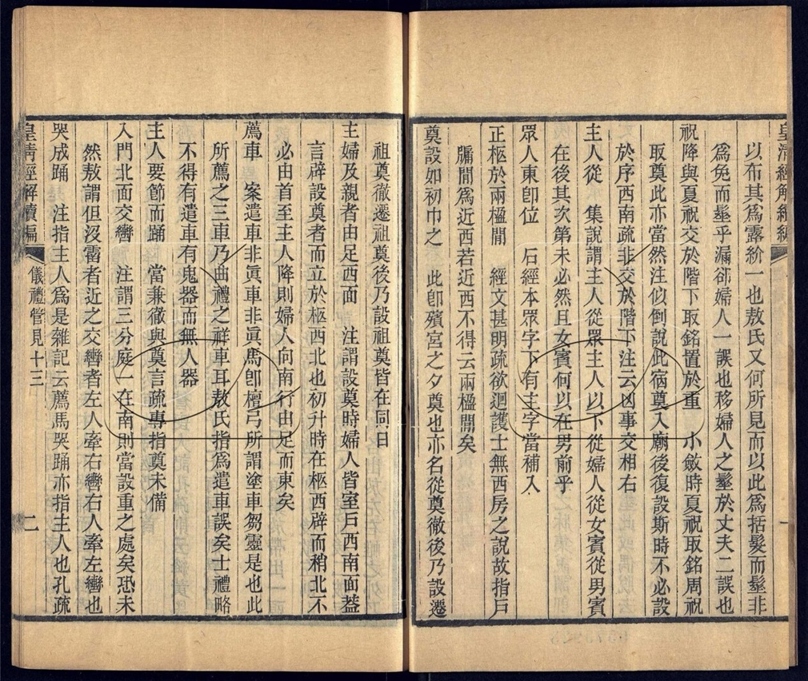 皇清經解續編
一
以布其爲露紒一也敖氏又何所見而以此爲括髮而髽非
爲免而髽乎漏卻婦人一誤也移婦人之髽於丈夫二誤也
祝降與夏祝交於階下取銘置於重　小斂時夏祝取銘周祝
取奠此亦當然注似倒說此宿奠入廟後復設斯時不必設
於序西南疏非交於階下注云凶事交相右
主人從　集說謂主人從眾主人以下從婦人從女賓從男賓
在後其次第未必然且女賓何以在男前乎
眾人東卽位　石經本眾字下有主字當補入
正柩於兩楹閒　經文甚明疏欲迴護士無西房之說故指戸
牖閒爲近西若近西不得云兩楹閒矣
奠設如初巾之　此卽殯宮之夕奠也亦名從奠徹後乃設遷
祖奠徹遷祖奠後乃設祖奠皆在同日
主婦及親者由足西面　注謂設奠時婦人皆室戸西南面葢
言辟設奠者而立於柩西北也初升時在柩西辟而稍北不
必由首至主人降則婦人向南行由足而東矣
薦車　案遣車非眞車非眞馬卽檀弓所謂塗車芻靈是也此
所薦之三車乃曲禮之祥車耳敖氏指爲遣車誤矣士禮略
不得有遣車有鬼器而無人器
主人要節而踊　當兼徹與奠言疏專指奠未備
入門北面交轡　注謂三分庭一在南則當設重之處矣恐未
然敖謂但沒霤者近之交轡者左人牽右轡右人牽左轡也
哭成踊　注指主人爲是雜記云薦馬哭踊亦指主人也孔疏
皇清經解續編
儀禮管見十三
二